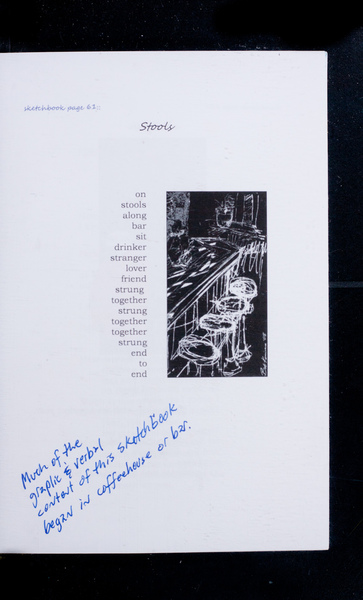 sketchbook page 61:
Stools
on
stools
along
bar
sit
drinker
stranger
lover
friend
strung
together
strung
together
together
strung
end
to
end
Much of the
graphic & verbal
content of this sketchbook
began in coffeehouse or bar.